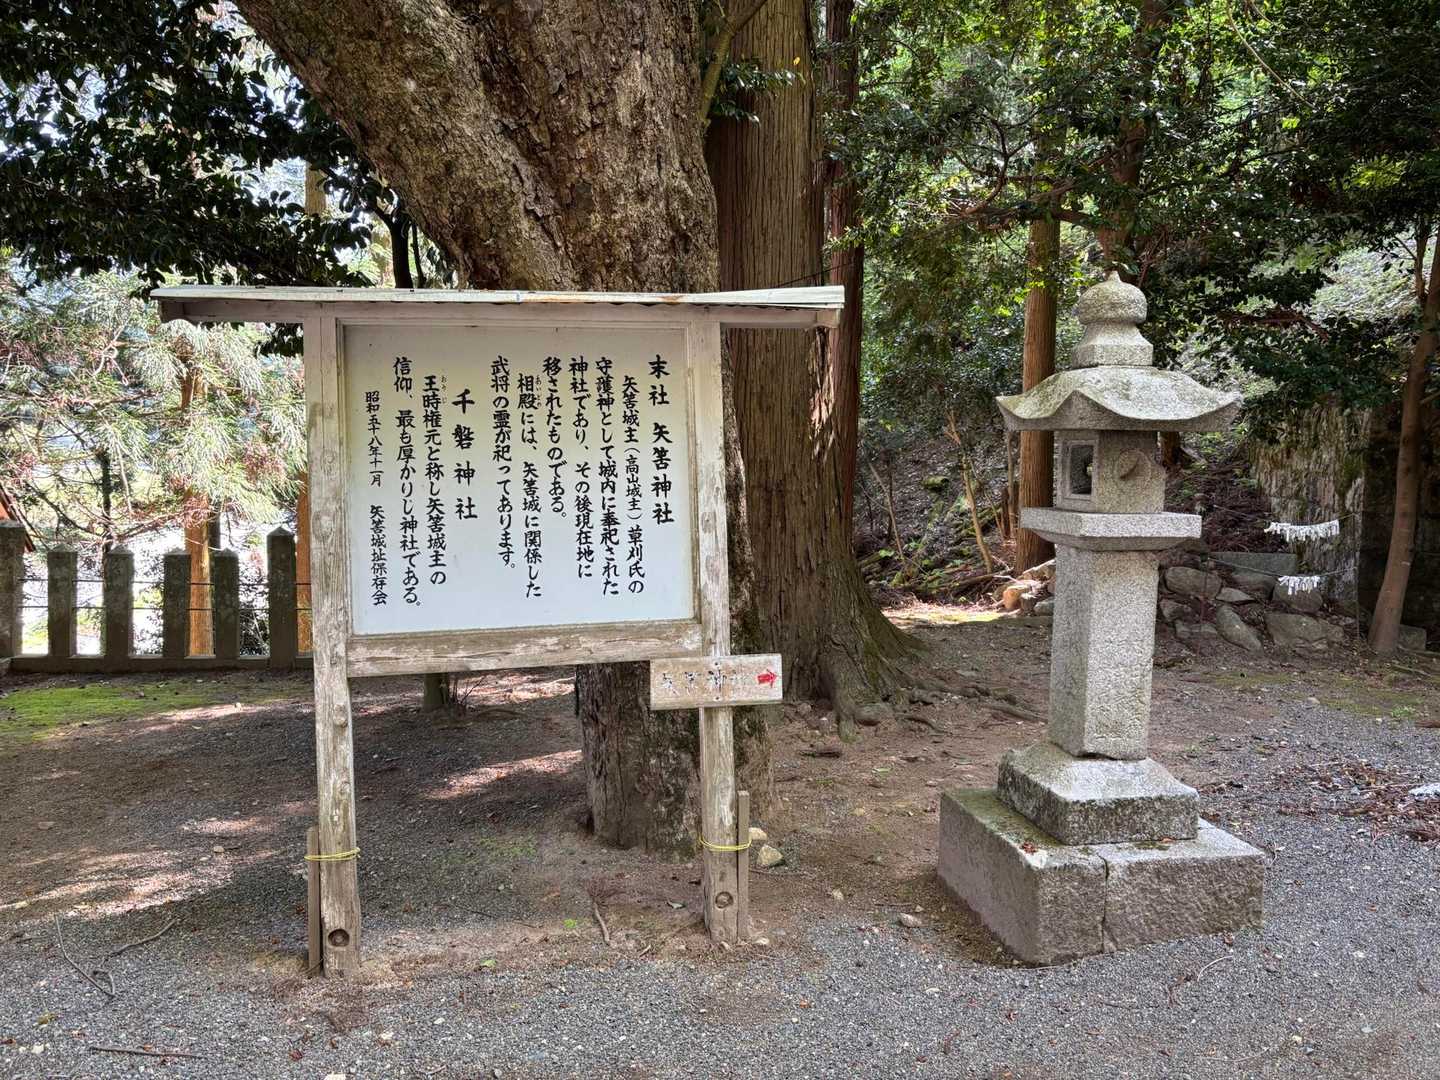 末社 矢筈神社
矢筈城主（高山城主）草刈氏の
守護神として城内に奉祀された
神社であり、その後現在地に
移されたものである。
相殿には、矢筈城に関係した
あいどの
武将の霊が祀ってあります。
千磐神社
王時権元と称し矢筈城主の
おうじ
信仰、最も厚かりじ神社である。
昭和五十八年十一月 矢筈城址保存会
矢筈神社